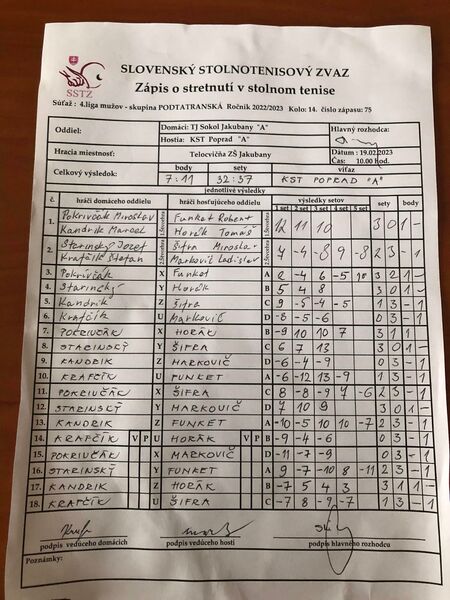 SSTZ
SLOVENSKÝ STOLNOTENISOVÝ ZVAZ
Zápis o stretnutí v stolnom tenise
Súťaž : 4.liga mužov - skupina PODTATRANSKÁ Ročník 2022/2023 Kolo: 14. číslo zápasu: 75
Oddiel: Domáci: TJ Sokol Jakubany "A" Hlavný rozhodca:
Hostia: KST Poprad "A"
Hracia miestnosť: Telocvičňa ZŠ Jakubany Dátum : 19.02.2023
Čas: 10.00 hod.
Celkový výsledok: body sety víťaz
7:11 32:37 KST POPRAD "A"
jednotlivé výsledky
č. hráči domáceho oddielu hráči hosťujúceho oddielu výsledky setov sety body
1 set 2 set 3 set 4 set 5 set
1. Pokrivčák Miroslav Funket Robert 12 11 10 3 0 1 -
Kandrik Marcel Horák Tomáš
2. Starinský Jozef Šifra Miroslav 7 -4 -8 9 -8 2 3 - 1
Krafčík Štefan Markovič Ladislav
3. Pokrivčák X Funket A 2 -6 4 -5 3 2 1 -
4. Starinský Y Horák B 5 4 8 3 0 1 -
5. Kandrik Z Šifra C 9 -5 -4 -5 1 3 - 1
6. Krafčík U Markovič D -8 -5 -6 0 3 - 1
7. POKRIVČÁK X HORÁK B -9 10 10 7 3 1 1
8. STARINSKÝ Y ŠIFRA C 6 7 13 3 0 1 -
9. KANDRIK Z MARKOVIČ D -6 -4 -9 0 3 - 1
10. KRAFČÍK U FUNKET A -6 -12 13 -9 1 3 - 1
11. POKRIVČÁK X ŠIFRA C 8 -8 -9 -6 2 3 - 1
12. STARINSKÝ Y MARKOVIČ D 7 10 9 3 0 1 -
13. KANDRIK Z FUNKET A -10 -5 10 10 -7 2 3 - 1
14. KRAFČÍK V P U HORÁK V P B -9 -4 -6 0 3 - 1
15. POKRIVČÁK X MARKOVIČ D -11 -7 -9 0 3 - 1
16. STARINSKÝ Y FUNKET A 9 -7 -10 8 -11 2 3 - 1
17. KANDRIK Z HORÁK B -7 5 4 3 3 1 1 -
18. KRAFČÍK U ŠIFRA C -7 8 -9 -7 1 3 - 1
podpis vedúceho domácich podpis vedúceho hostí podpis hlavného rozhodcu
Poznámky: